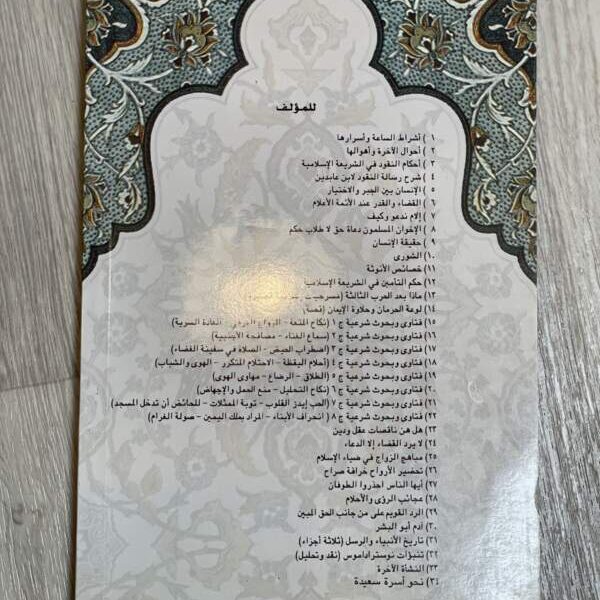 للمؤلف
١ ) أشراط الساعة وأسرارها
٢ ) أحوال الآخرة وأهوالها
٣ ) أحكام النقود في الشريعة الإسلامية
٤ ) شرح رسالة النقود لابن عابدين
٥ ) الإنسان بين الجبر والاختيار
٦ ) القضاء والقدر عند الأئمة الأعلام
٧ ) إلام ندعو وكيف
٨ ) الإخوان المسلمون دعاة حق لا طلاب حكم
٩ ) حقيقة الإنسان
١٠) الشورى
١١) خصائص الأنوثة
١٢) حكم التأمين في الشريعة الإسلامية
١٣) ماذا بعد الحرب الثالثة (مسرحيات
١٤) لوعة الحرمان وحلاوة الإيمان (قصة)
١٥) فتاوى وبحوث شرعية ج ١ (نكاح المتعة - الزواج العرفي - العادة السرية)
١٦) فتاوى وبحوث شرعية ج ٢ (سماع الغناء - مصافحة الأجنبية)
١٧) فتاوى وبحوث شرعية ج ٣ (اضطراب الحيض - الصلاة في سفينة الفضاء)
١٨) فتاوى وبحوث شرعية ج ٤ (أحلام اليقظة - الاحتلام المتكرر - الهوى والشباب)
١٩) فتاوى وبحوث شرعية ج ٥ (الطلاق - الرضاع - مهاوى الهوى)
٢٠) فتاوى وبحوث شرعية ج ٦ (نكاح التحليل - منع الحمل والإجهاض)
٢١) فتاوى وبحوث شرعية ج ٧ (الحب إيدز القلوب - توبة الممثلات - للحائض أن تدخل المسجد)
٢٢) فتاوى وبحوث شرعية ج ٨ (انحراف الأبناء - المراد بملك اليمين - صولة الغرام)
٢٣) هل هن ناقصات عقل ودين
٢٤) لا يرد القضاء إلا الدعاء
٢٥) مباهج الزواج في ضياء الإسلام
٢٦) تحضير الأرواح خرافة صراح
٢٧) أيها الناس احذروا الطوفان
٢٨) عجائب الرؤى والأحلام
٢٩) الرد القويم على من جانب الحق المبين
٣٠) آدم أبو البشر
٣١) تاريخ الأنبياء والرسل (ثلاثة أجزاء)
٣٢) تنبؤات نوستراداموس (نقد وتحليل)
٣٣) النشأة الآخرة
٣٤) نحو أسرة سعيدة